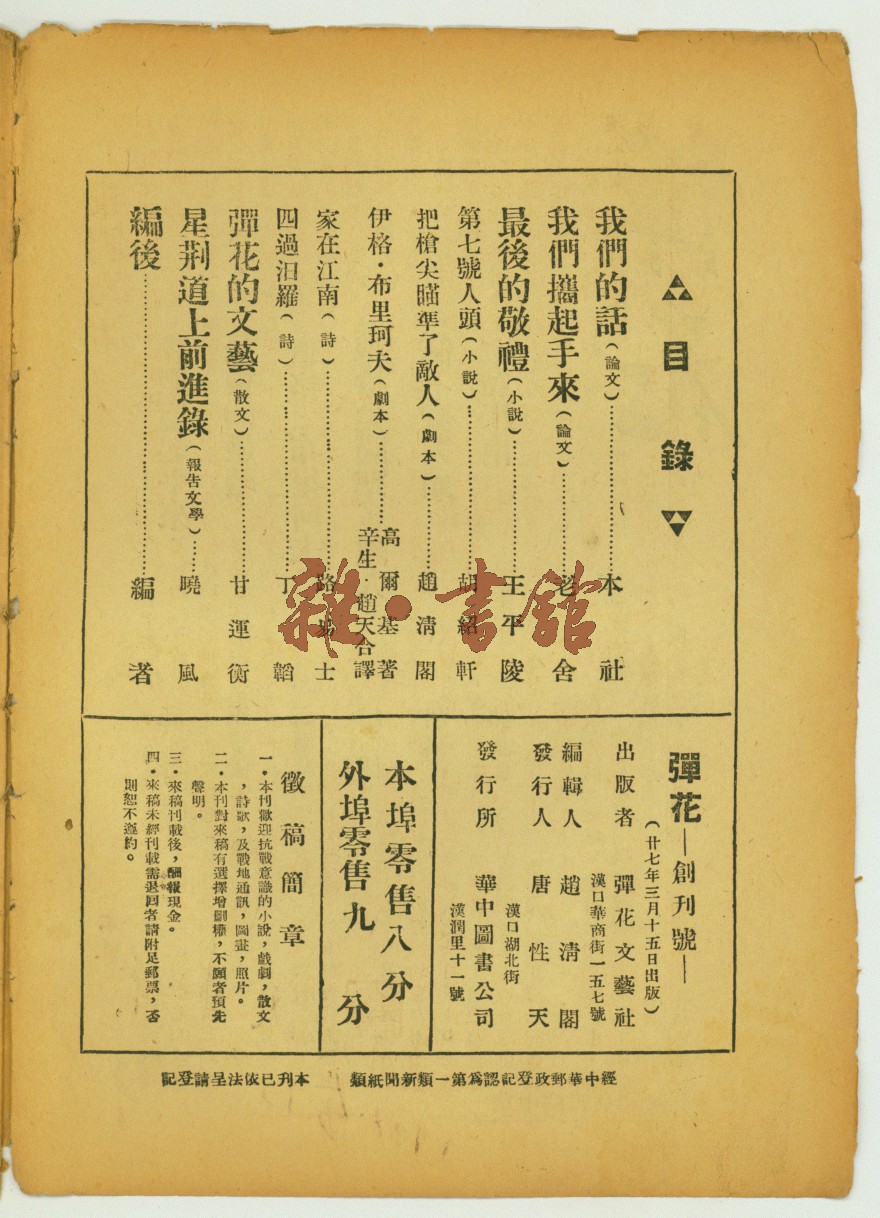 目錄
我們的話(論文)…………本社
我們攜起手來(論文)…………老舍
最後的敬禮(小說)…………王平陵
第七號人頭(小說)…………胡紹軒
把槍尖瞄準了敵人(劇本)…………趙清閣
伊格·布里珂夫(劇本)…………高爾基著
辛生·趙天合譯
家在江南(詩)…………路易士
四過汨羅(詩)…………丁韜
彈花的文藝(散文)…………甘運衡
星荆道上前進錄(報告文學)……曉風
編後…………編者
彈花—創刊號—
(廿七年三月十五日出版)
出版者 彈花文藝社
漢口華商街一五七號
編輯人 趙清閣
發行人 唐性天
漢口湖北街
發行所 華中圖書公司
漢潤里十一號
本埠零售八分
外埠零售九分
徵稿簡章
一·本刊歡迎抗戰意識的小說,戲劇,散文
,詩歌,及戰地通訊,圖畫,照片。
二·本刊對來稿有選擇增刪權,不願者預先
聲明。
三·來稿刊載後,酬報現金。
四·來稿未經刊載需退回者請附足郵票,否
則恕不遵約。
經中華郵政登記認爲第一類新聞紙類 本刊已依法呈請登記
雜·書館